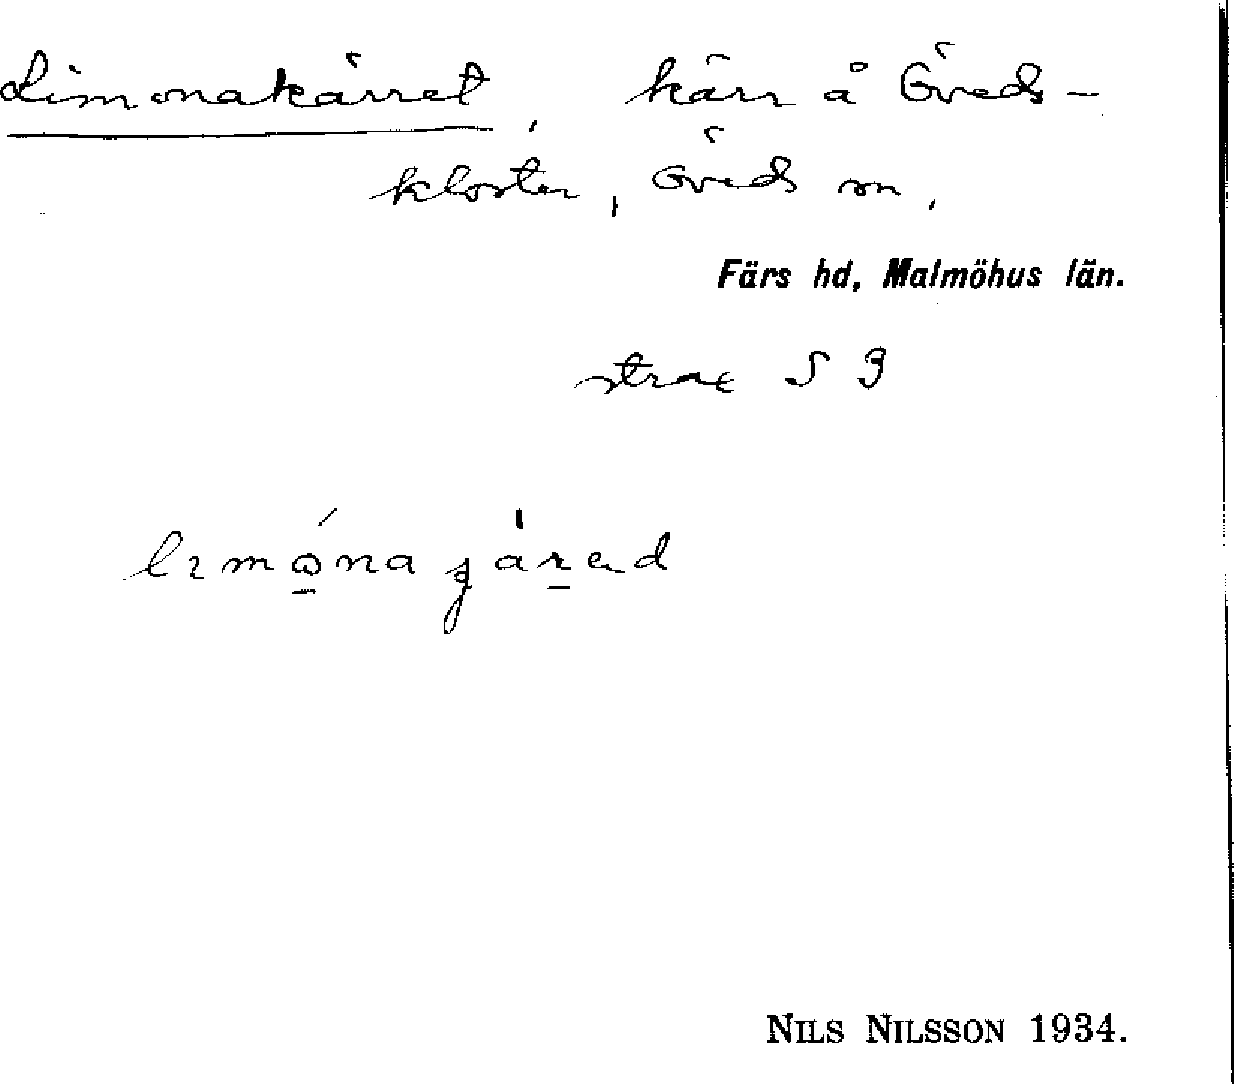 Limonakärret, kärr å Öveds-
kloster, Öveds sn,
Färs hd, Malmöhus län.
strax S 3
NILS NILSSON 1934.